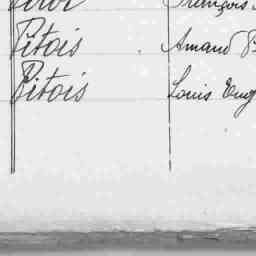 François
Pitois Amand
Pitois Louis Eug